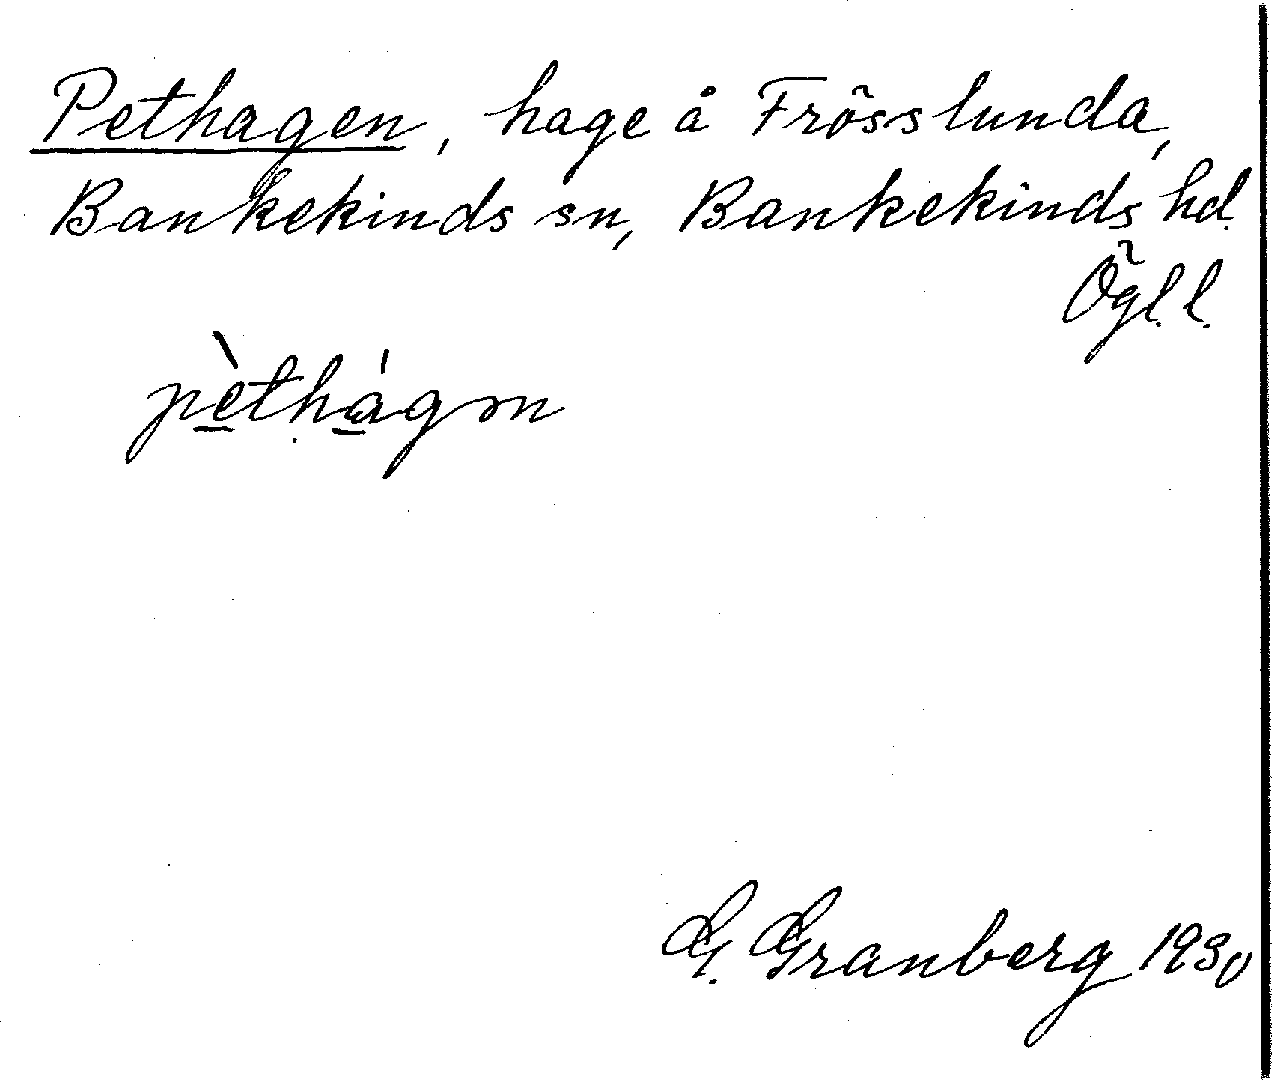 Pethagen, hage å Frösslunda,
Bankekinds sn, Bankekinds hd.
Ögl. l.
pèthágən
G. Granberg 1930